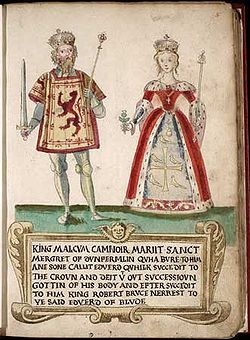 KING MALCUM CAMNOIR MARIIT SANCT
MERGRET OF DUNFERMLIN QUHA BURE TO HIM
ANE SONE CALLIT EDVERD QUHILK SUCCEDIT TO
THE CROUN AND DEIT UOUT SUCCESSIOUN
GOTTIN OF HIS BODY AND EFTER SUCCEDIT
TO HIM KING ROBERT BRUCE NERREST TO
YE SAID EDUERD OF BLUDE